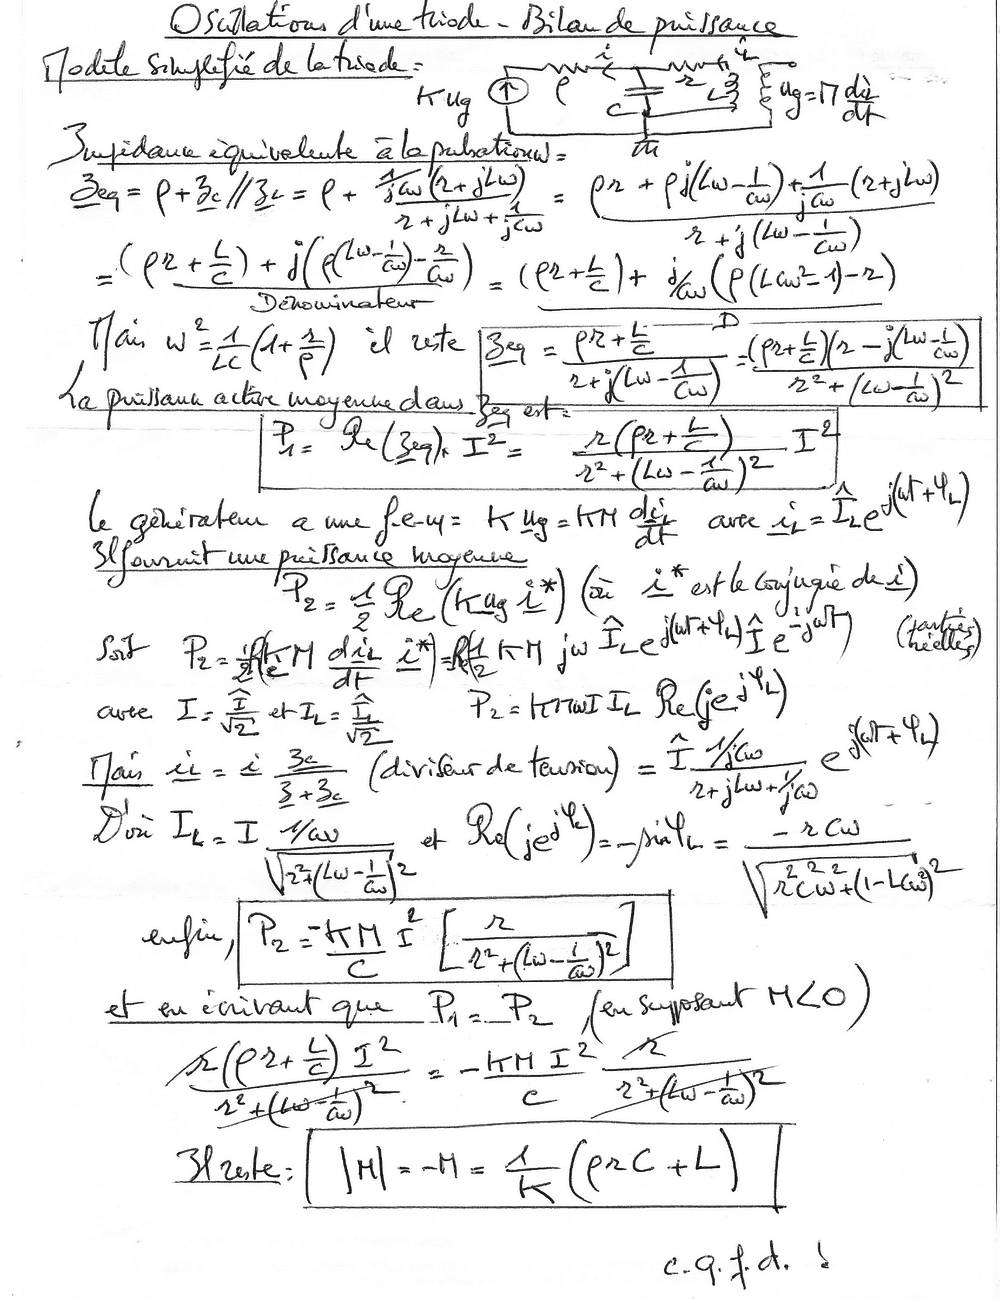 Oscillations d'une triode - Bilan de puissance
Modèle simplifié de la triode =
K ug ρ i C r L iL ug = M diL/dt
Impédance équivalente à la pulsation ω =
Zeq = ρ + Zc // ZL = ρ + (1/jCω (r + jLω)) / (r + jLω + 1/jCω) = (ρr + ρj(Lω - 1/Cω) + 1/jCω (r + jLω)) / (r + j(Lω - 1/Cω))
= ((ρr + L/C) + j(ρ(Lω - 1/Cω) - r/Cω)) / Dénominateur = ((ρr + L/C) + j/Cω (ρ(LCω² - 1) - r)) / D
Mais ω² = 1/LC (1 + r/ρ) il reste Zeq = (ρr + L/C) / (r + j(Lω - 1/Cω)) = (ρr + L/C)(r - j(Lω - 1/Cω)) / (r² + (Lω - 1/Cω)²)
La puissance active moyenne dans Zeq est =
P1 = Re(Zeq) . I² = r(ρr + L/C) / (r² + (Lω - 1/Cω)²) I²
Le générateur a une f-e-m = K ug = KM diL/dt avec iL = ÎL e^j(ωt + φL)
Il fournit une puissance moyenne
P2 = 1/2 Re(K ug i*) (où i* est le conjugué de i)
Soit P2 = 1/2 Re(KM diL/dt i*) = Re(1/2 KM jω ÎL e^j(ωt + φL) Î e^-jωt) (parties réelles)
avec I = Î/√2 et IL = ÎL/√2 P2 = KMω I IL Re(je^jφL)
Mais iL = i Zc / (Z + Zc) (diviseur de tension) = Î (1/jCω) / (r + jLω + 1/jCω) e^j(ωt + φL)
D'où IL = I (1/Cω) / √(r² + (Lω - 1/Cω)²) et Re(je^jφL) = -sinφL = -rCω / √(r²C²ω² + (1 - LCω²)²)
enfin, P2 = -KM/C I² [r / (r² + (Lω - 1/Cω)²)]
et en écrivant que P1 = P2, (en supposant M<0)
r(ρr + L/C) I² / (r² + (Lω - 1/Cω)²) = -KM I²/C r / (r² + (Lω - 1/Cω)²)
Il reste : |M| = -M = 1/K (ρrC + L)
c.q.f.d. !